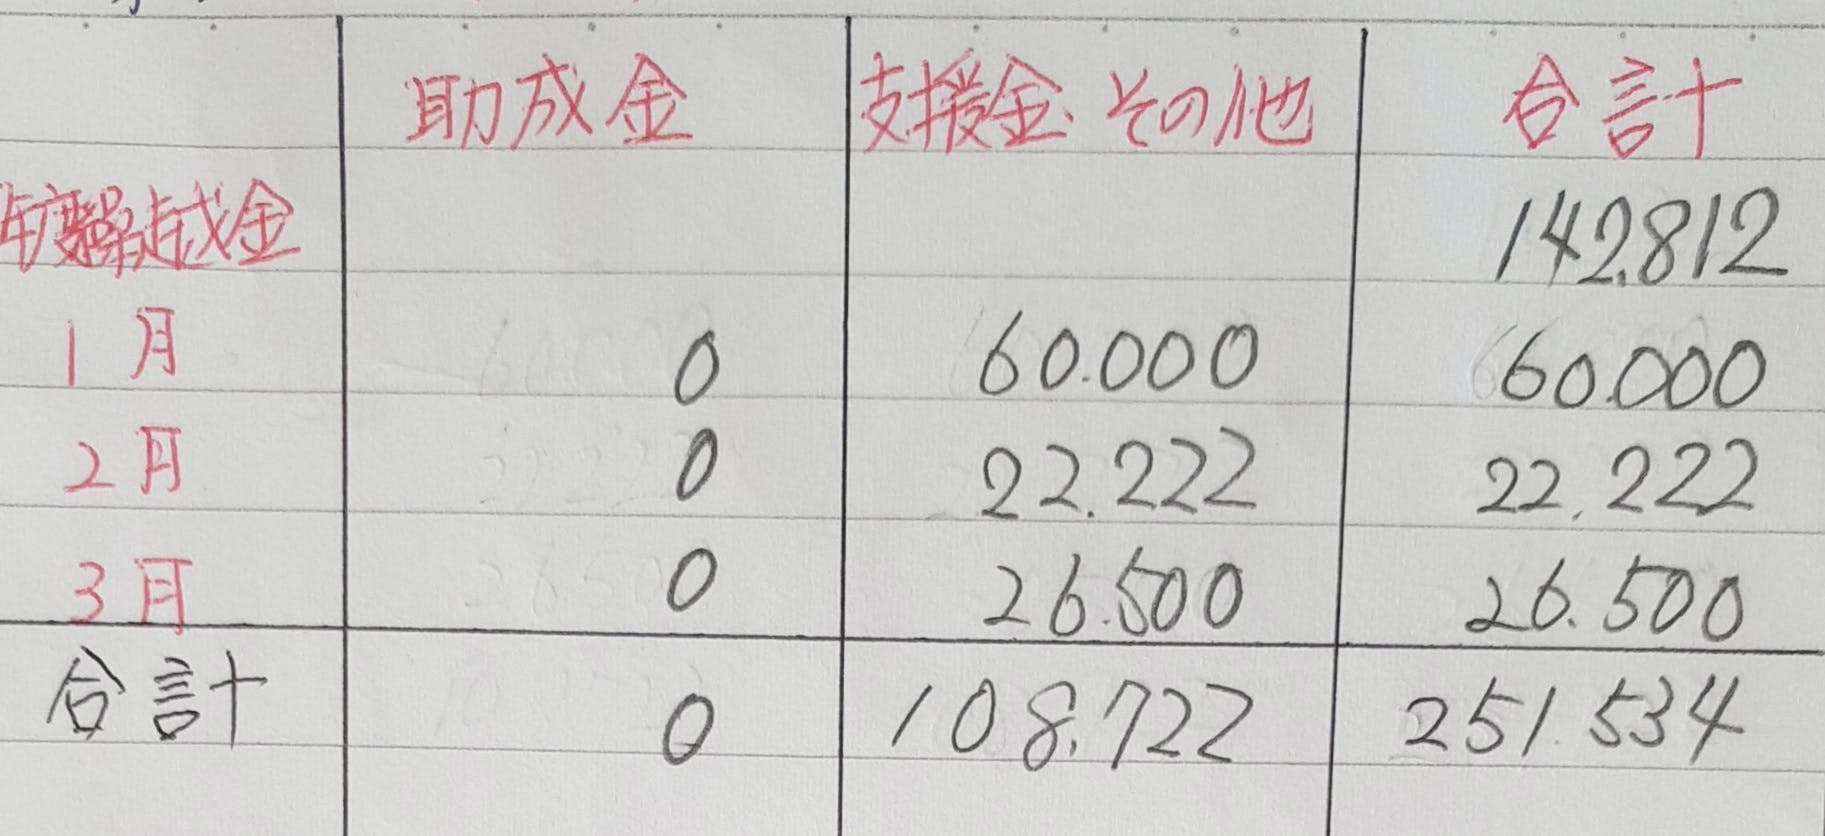 助成金 支援金・その他 合計
年度繰越金 142,812
1月 0 60.000 60.000
2月 0 22.222 22.222
3月 0 26.500 26.500
合計 0 108,722 251.534